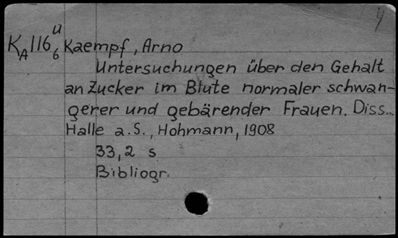 u
KA116 6 Kaempf, Arno
Untersuchungen über den Gehalt
an Zucker im Blute normaler schwan-
gerer und gebärender Frauen. Diss..
Halle a.S., Hohmann, 1908
33,2 s
Bibliogr.